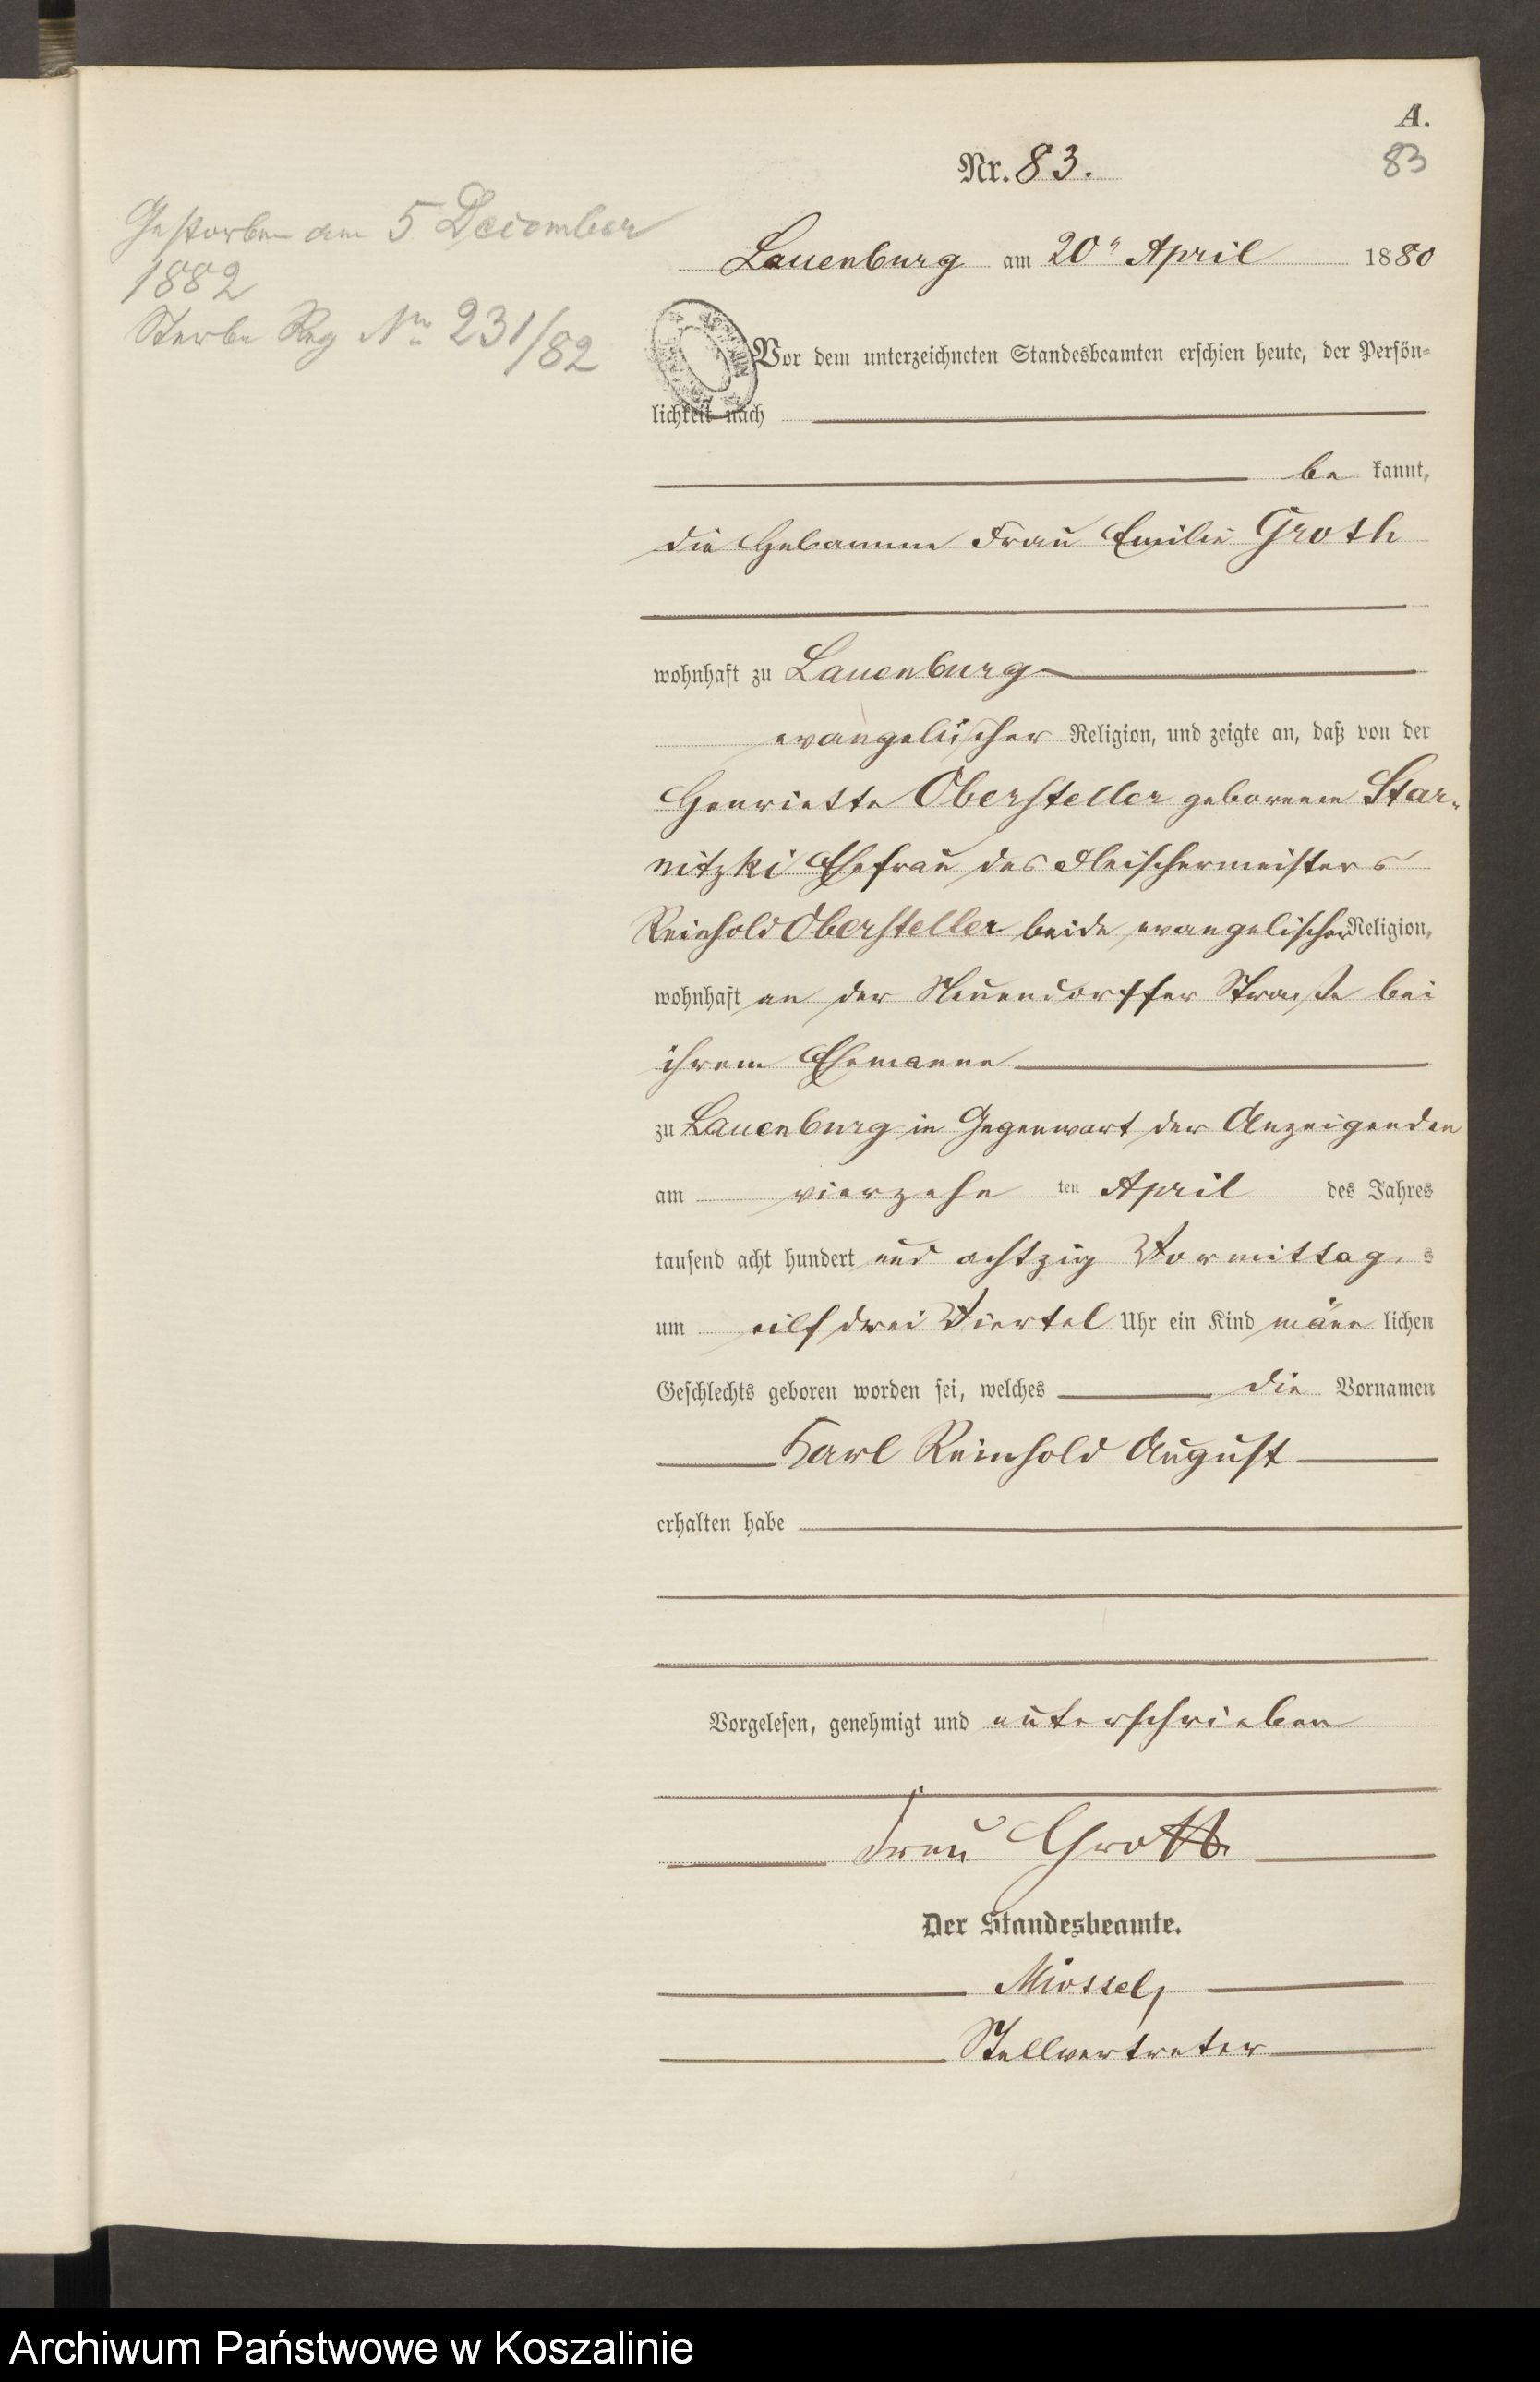 A.
Nr. 83.
83
Gestorben am 5 December
1882
Sterbe Reg Nr. 231/82
Lauenburg am 20n April 1880
Vor dem unterzeichneten Standesbeamten erschien heute, der Persön=
lichkeit nach
be kannt,
die Hebamme Frau Emilie Groth
wohnhaft zu Lauenburg
evangelischer Religion, und zeigte an, daß von der
Henriette Obersteller geborenen Star-
nitzki Ehefrau des Fleischermeisters
Reinhold Obersteller beide evangelischer Religion,
wohnhaft an der Neuendorffer Straße bei
ihrem Ehemanne
zu Lauenburg in Gegenwart der Anzeigenden
am vierzehn ten April des Jahres
tausend acht hundert und achtzig Vormittag s
um eilf drei Viertel Uhr ein Kind männ lichen
Geschlechts geboren worden sei, welches die Vornamen
Karl Reinhold August
erhalten habe
Vorgelesen, genehmigt und unterschrieben
Frau Groth
Der Standesbeamte.
Stellvertreter
Archiwum Państwowe w Koszalinie